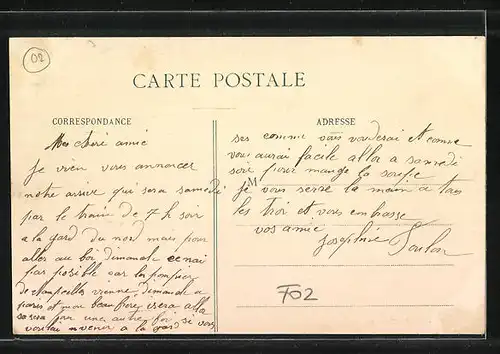 02
CARTE POSTALE
CORRESPONDANCE
Mes chèré amié
Je vien vous annoncer
notre arivé qui sera samedi
par le train de 7 h soir
a la gard du nord mais pour
aller au boi dimanche ce nai
par posible car les pompier
vienne dimanche a
paris et mon beau frère isera alla
sa sera pour une autre foi si vous
voulai nvenir à la gard
ADRESSE
ses comme vous vouderai et comme
vous aurai facile allor a samedi
soir pour mangé la soupe
M
Je vous serre la main a tous
les troi et vous embrasse
vos amie
Josephine Toulon
F02